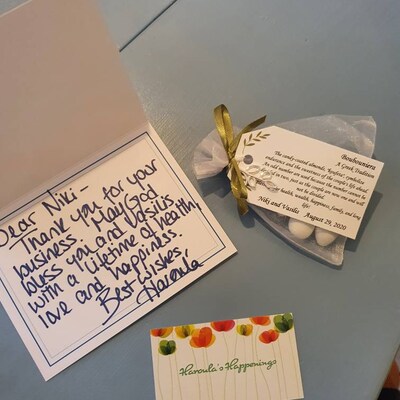 Dear Niki-
Thank you for your
business. May God
bless you and Vasilis
with a lifetime of health,
love and happiness.
Best wishes,
Haroula
Bonbouniera
A Greek Tradition
The candy-coated almonds, "koufeta", symbolize
endurance and the sweetness of the couple's life ahead.
An odd number are used because the number cannot be
divided in two, just as the couple are now one and will
not be divided!
health, wealth, happiness, family, and long
life!
Niki and Vasilis August 29, 2020
Haroula's Happenings